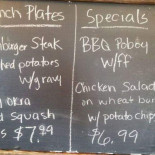 nch Plates
mburger Steak
shed potatoes
w/gravy
d Okra
d Squash
s $7.99
Specials
BBQ Pobboy
w/ff
Chicken Salad
on wheat bun
w/ potato chips
$6.99